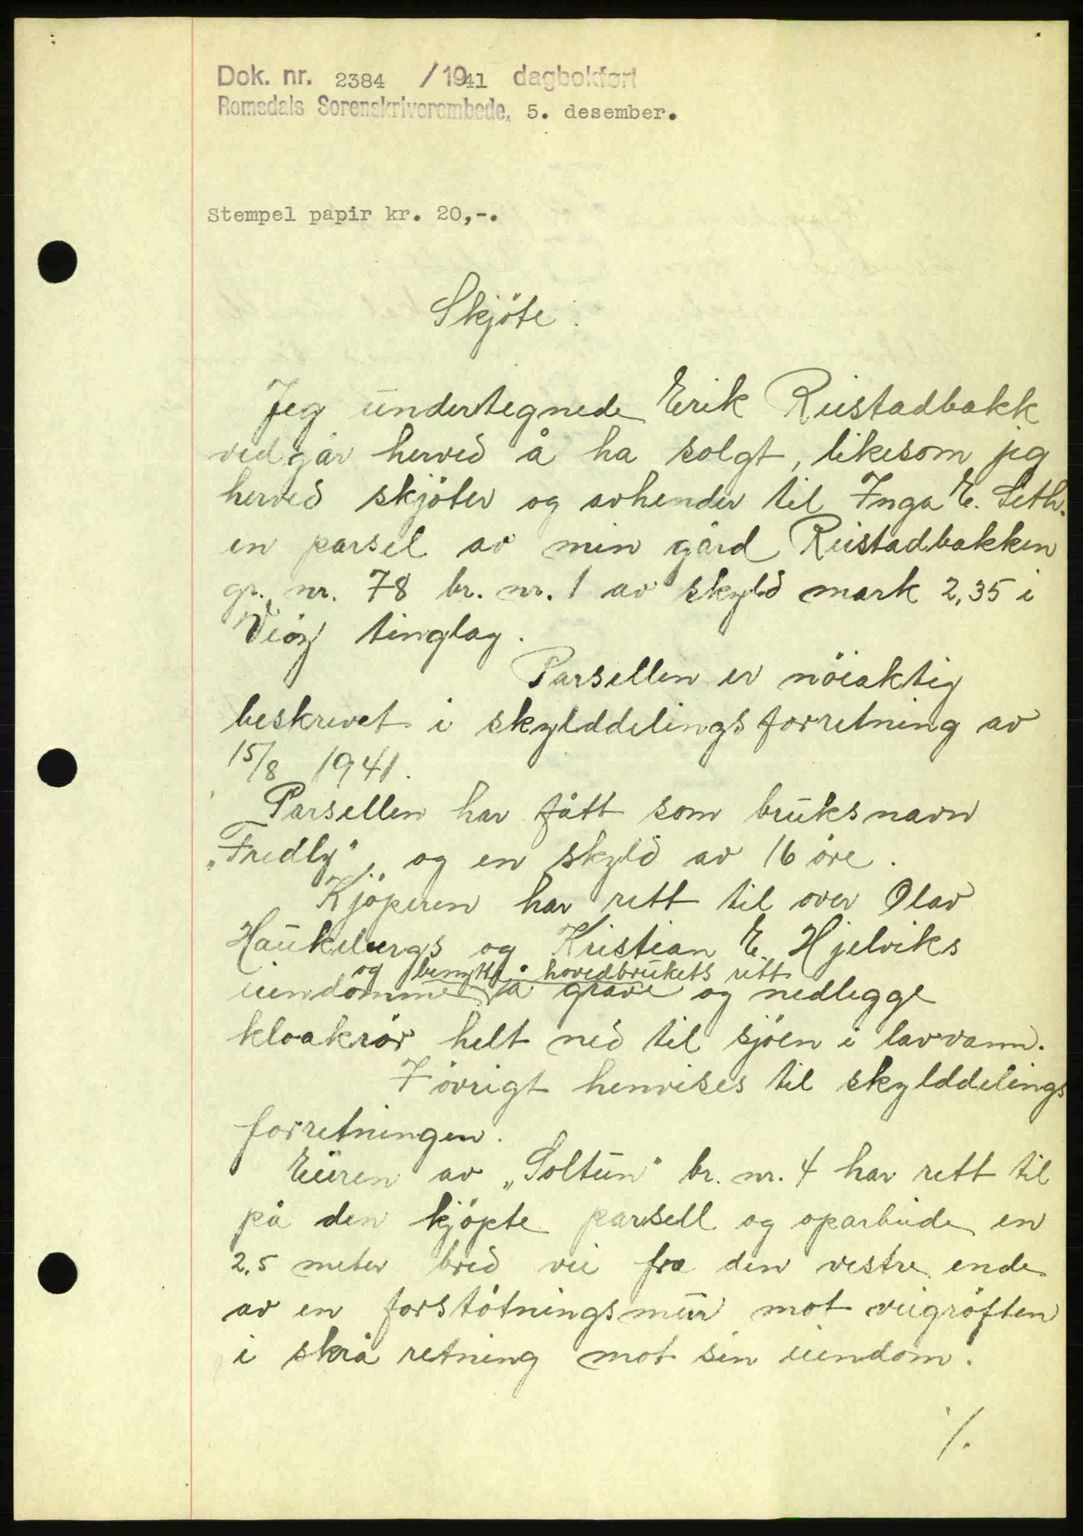 Dok. nr. 2384 / 1941 dagbokført
Romsdals Sorenskriverembede, 5. desember.
Stempel papir kr. 20,-.
Skjöte.
Jeg undertegnede Erik Reistadbakk
vedgår herved å ha solgt, likesom jeg
herved skjöter og avhender til Inga E. Seth.
en parsel av min gård Reistadbakken
gr. nr. 78 br. nr. 1 av skyld mark 2,35 i
Veöy tinglag.
Parsellen er nöiaktig
beskrevet i skylddelingsforretning av
15/8 1941.
Parsellen har fått som bruksnavn
„Fredly", og en skyld av 16 öre.
Kjöperen har rett til over Olav
Haukebergs og Kristian E. Hjelviks
og benytte hovedbrukets rett
eiendomme å grave og nedlegge
kloakrör helt ned til sjöen i lavvann.
I övrigt henvises til skylddelings
forretningen.
Eieren av „Soltun" br. nr. 4 har rett til
på den kjöpte parsell og oparbeide en
2,5 meter bred vei fra den vestre ende
av en forstötningsmur mot veigröften
i skrå retning mot sin eiendom.
/.